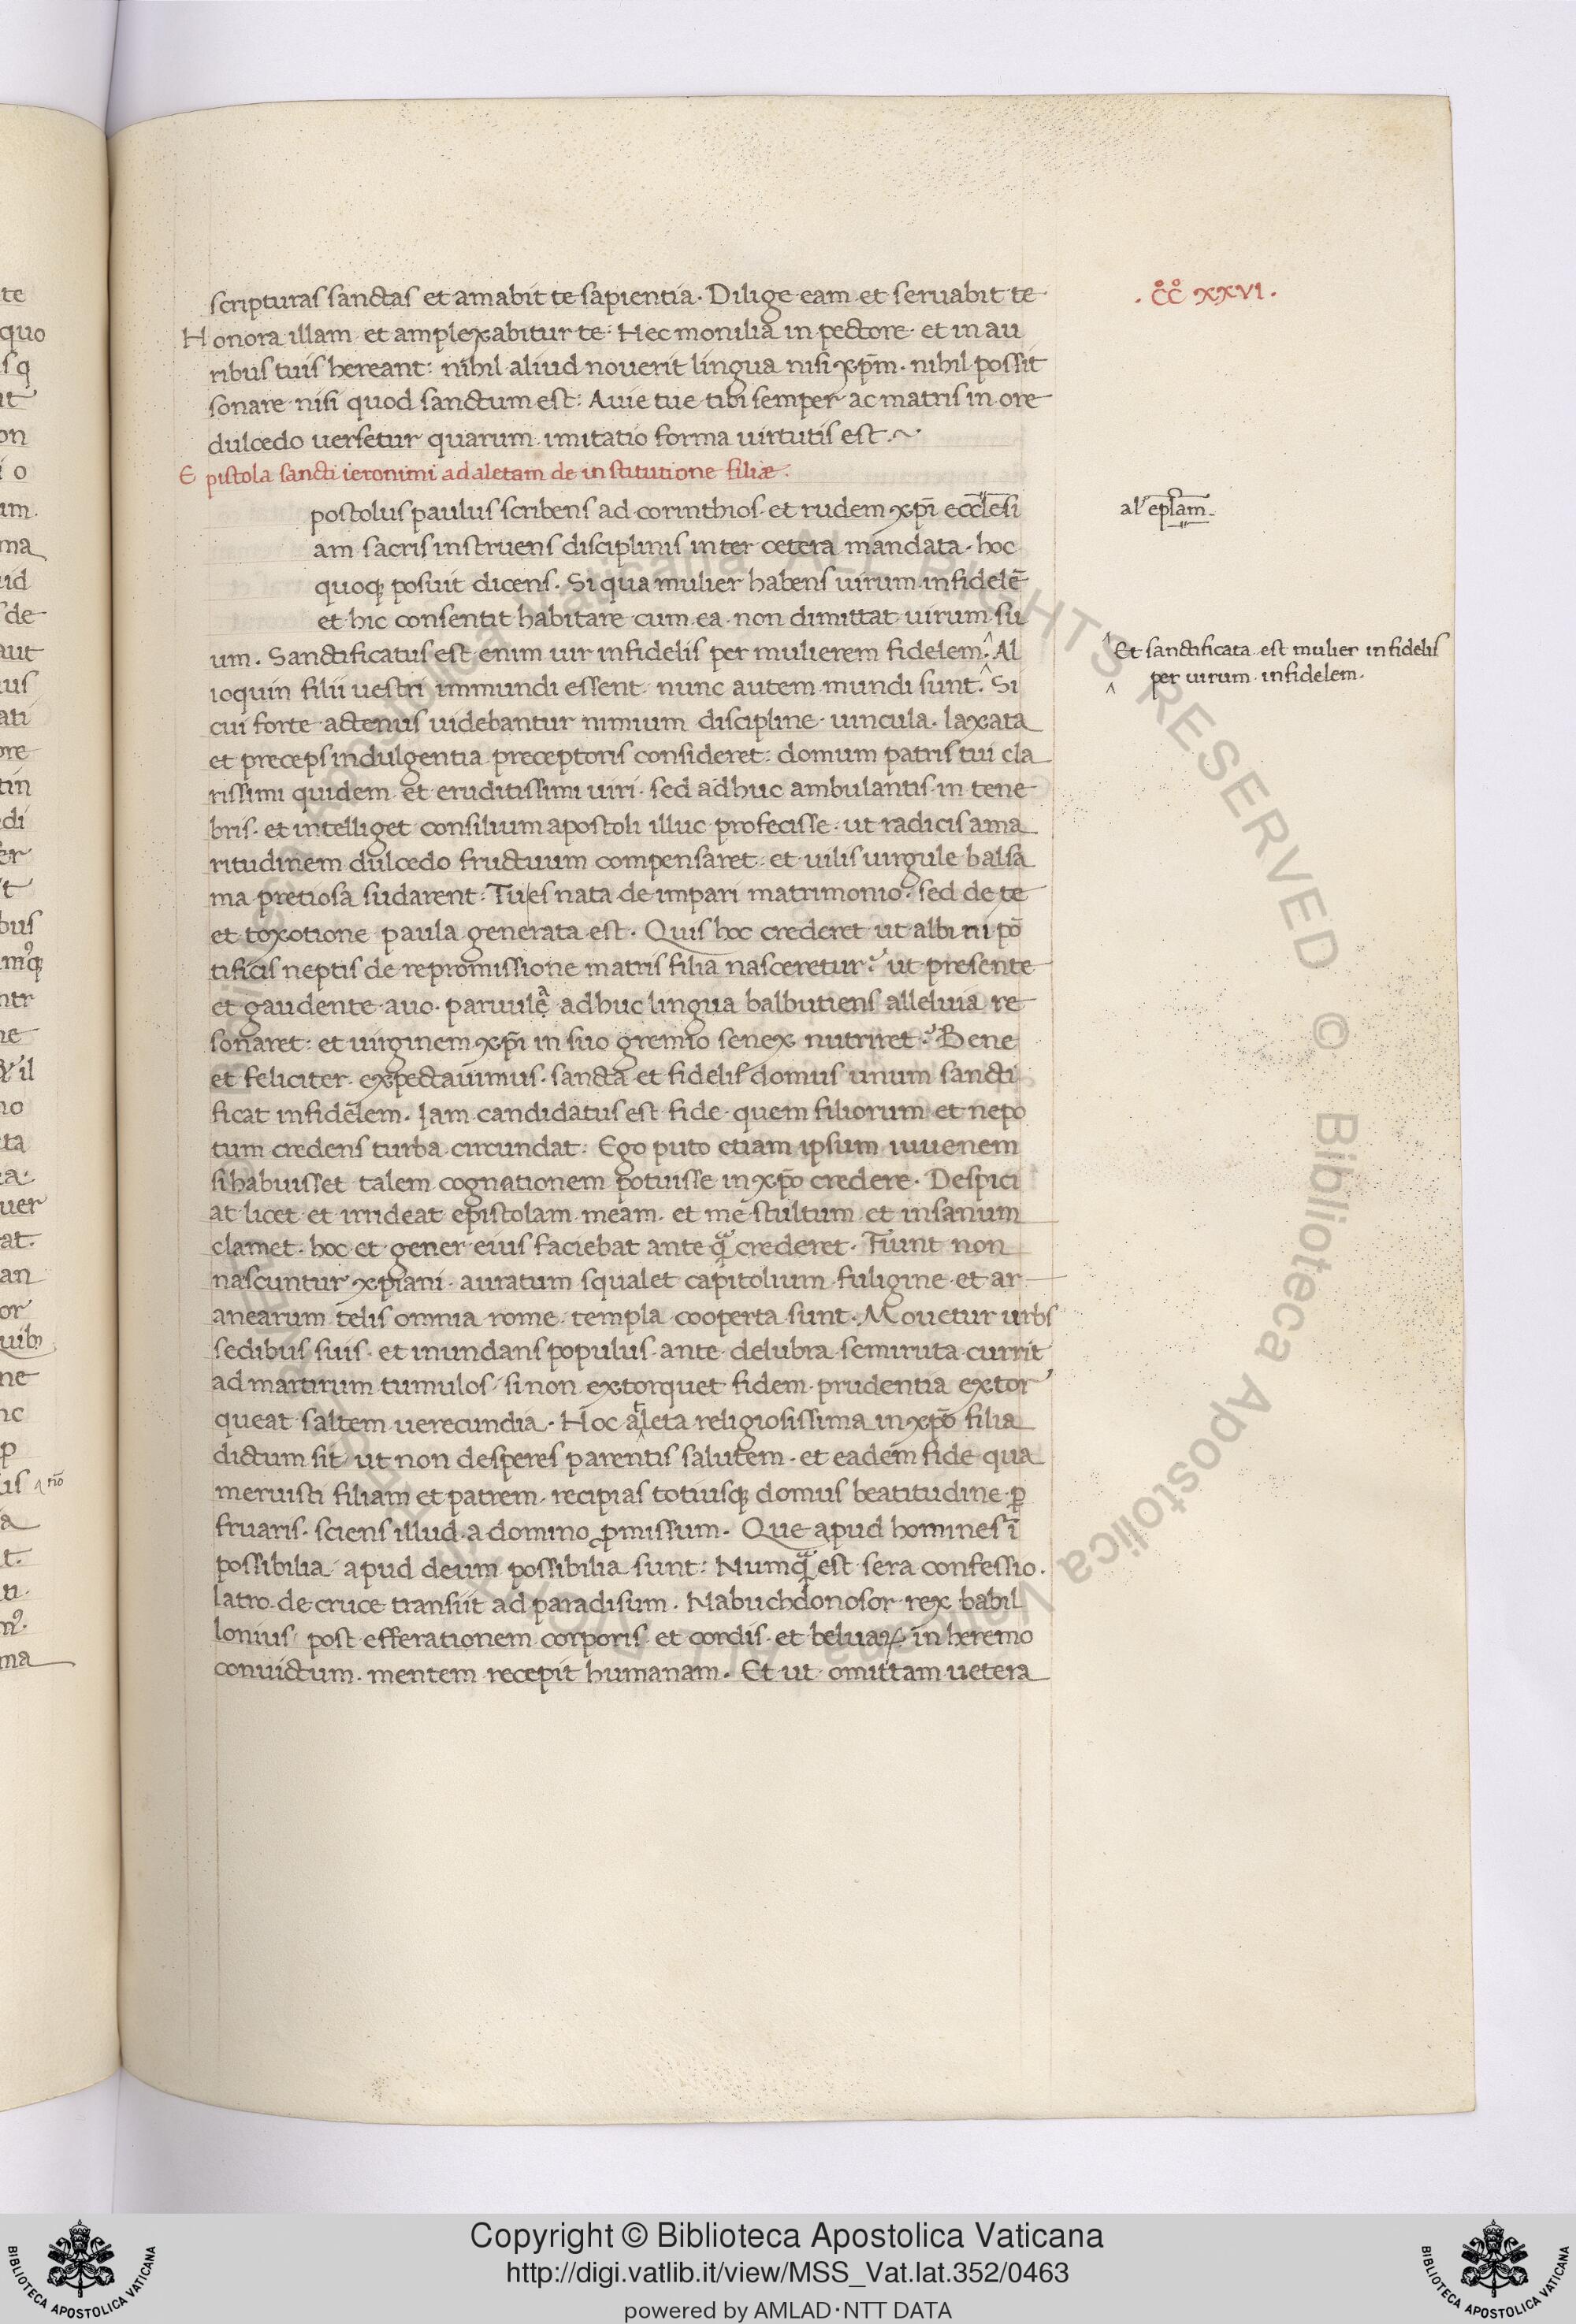 scripturas sanctas et amabit te sapientia. Dilige eam et seruabit te.
Honora illam et amplexabitur te: Hec monilia in pectore. et in au
ribus tuis hereant: nihil aliud nouerit lingua nisi xp̄m. nihil possit
sonare nisi quod sanctum est: Auie tue tibi semper ac matris in ore
dulcedo uersetur quarum imitatio forma uirtutis est.~.
Epistola sancti ieronimi ad aletam de institutione filiæ.
postolus paulus scribens ad corinthios. et rudem xp̄i ecclesi
am sacris instruens disciplinis inter cetera mandata. hoc
quoq; posuit dicens. Si qua mulier habens uirum infidelē
et hic consentit habitare cum ea. non dimittat uirum su
um. Sanctificatus est enim uir infidelis per mulierem fidelem. Al
ioquin filii uestri immundi essent. nunc autem mundi sunt. Si
cui forte actenus uidebantur nimium discipline. uincula. laxata
et preceps indulgentia preceptoris consideret: domum patris tui cla
rissimi quidem et eruditissimi uiri. sed adhuc ambulantis in tene
bris. et intelliget consilium apostoli illuc profecisse. ut radicis ama
ritudinem dulcedo fructuum compensaret. et uilis uirgule balsa
ma pretiosa sudarent: Tu es nata de impari matrimonio. sed de te
et toxotione paula generata est. Quis hoc crederet ut albini pō
tificis neptis de repromissione matris filia nasceretur? ut presente
et gaudente auo. paruulę adhuc lingua balbutiens alleluia re
sonaret: et uirginem xp̄i in suo gremio senex nutriret? Bene
et feliciter. expectauimus. sancta et fidelis domus unum sancti
ficat infidelem. Iam candidatus est fide. quem filiorum et nepo
tum credens turba circundat: Ego puto etiam ipsum iuuenem
si habuisset talem cognationem potuisse in xp̄o credere. Despici
at licet et irrideat epistolam meam. et me stultum et insanum
clamet. hoc et gener eius faciebat ante qᵃ crederet. Fiunt non
nascuntur xp̄iani. auratum squalet capitolium. fuligine et ar
anearum telis omnia rome templa cooperta sunt. Mouetur urbs
sedibus suis. et inundans populus. ante delubra semiruta currit
ad martirum tumulos. si non extorquet fidem. prudentia extor
queat saltem uerecundia. Hoc aleta religiosissima in xp̄o filia
dictum sit. ut non desperes parentis salutem. et eadem fide qua
meruisti filiam et patrem. recipias totiusq; domus beatitudine ꝑ
fruaris. sciens illud a domino ꝓmissum. Que apud homines ī
possibilia apud deum possibilia sunt: Numqᵃ est sera confessio.
latro de cruce transiit ad paradisum. Nabuchdonosor rex babil
lonius post efferationem corporis et cordis. et beluaꝝ in heremo
conuictum. mentem recepit humanam. Et ut omittam uetera
. CC XXVI .
al' ep̄lam.
Et sanctificata est mulier infidelis
per uirum infidelem.
Copyright © Biblioteca Apostolica Vaticana
http://digi.vatlib.it/view/MSS_Vat.lat.352/0463
powered by AMLAD·NTT DATA
BIBLIOTECA APOSTOLICA VATICANA
BIBLIOTECA APOSTOLICA VATICANA